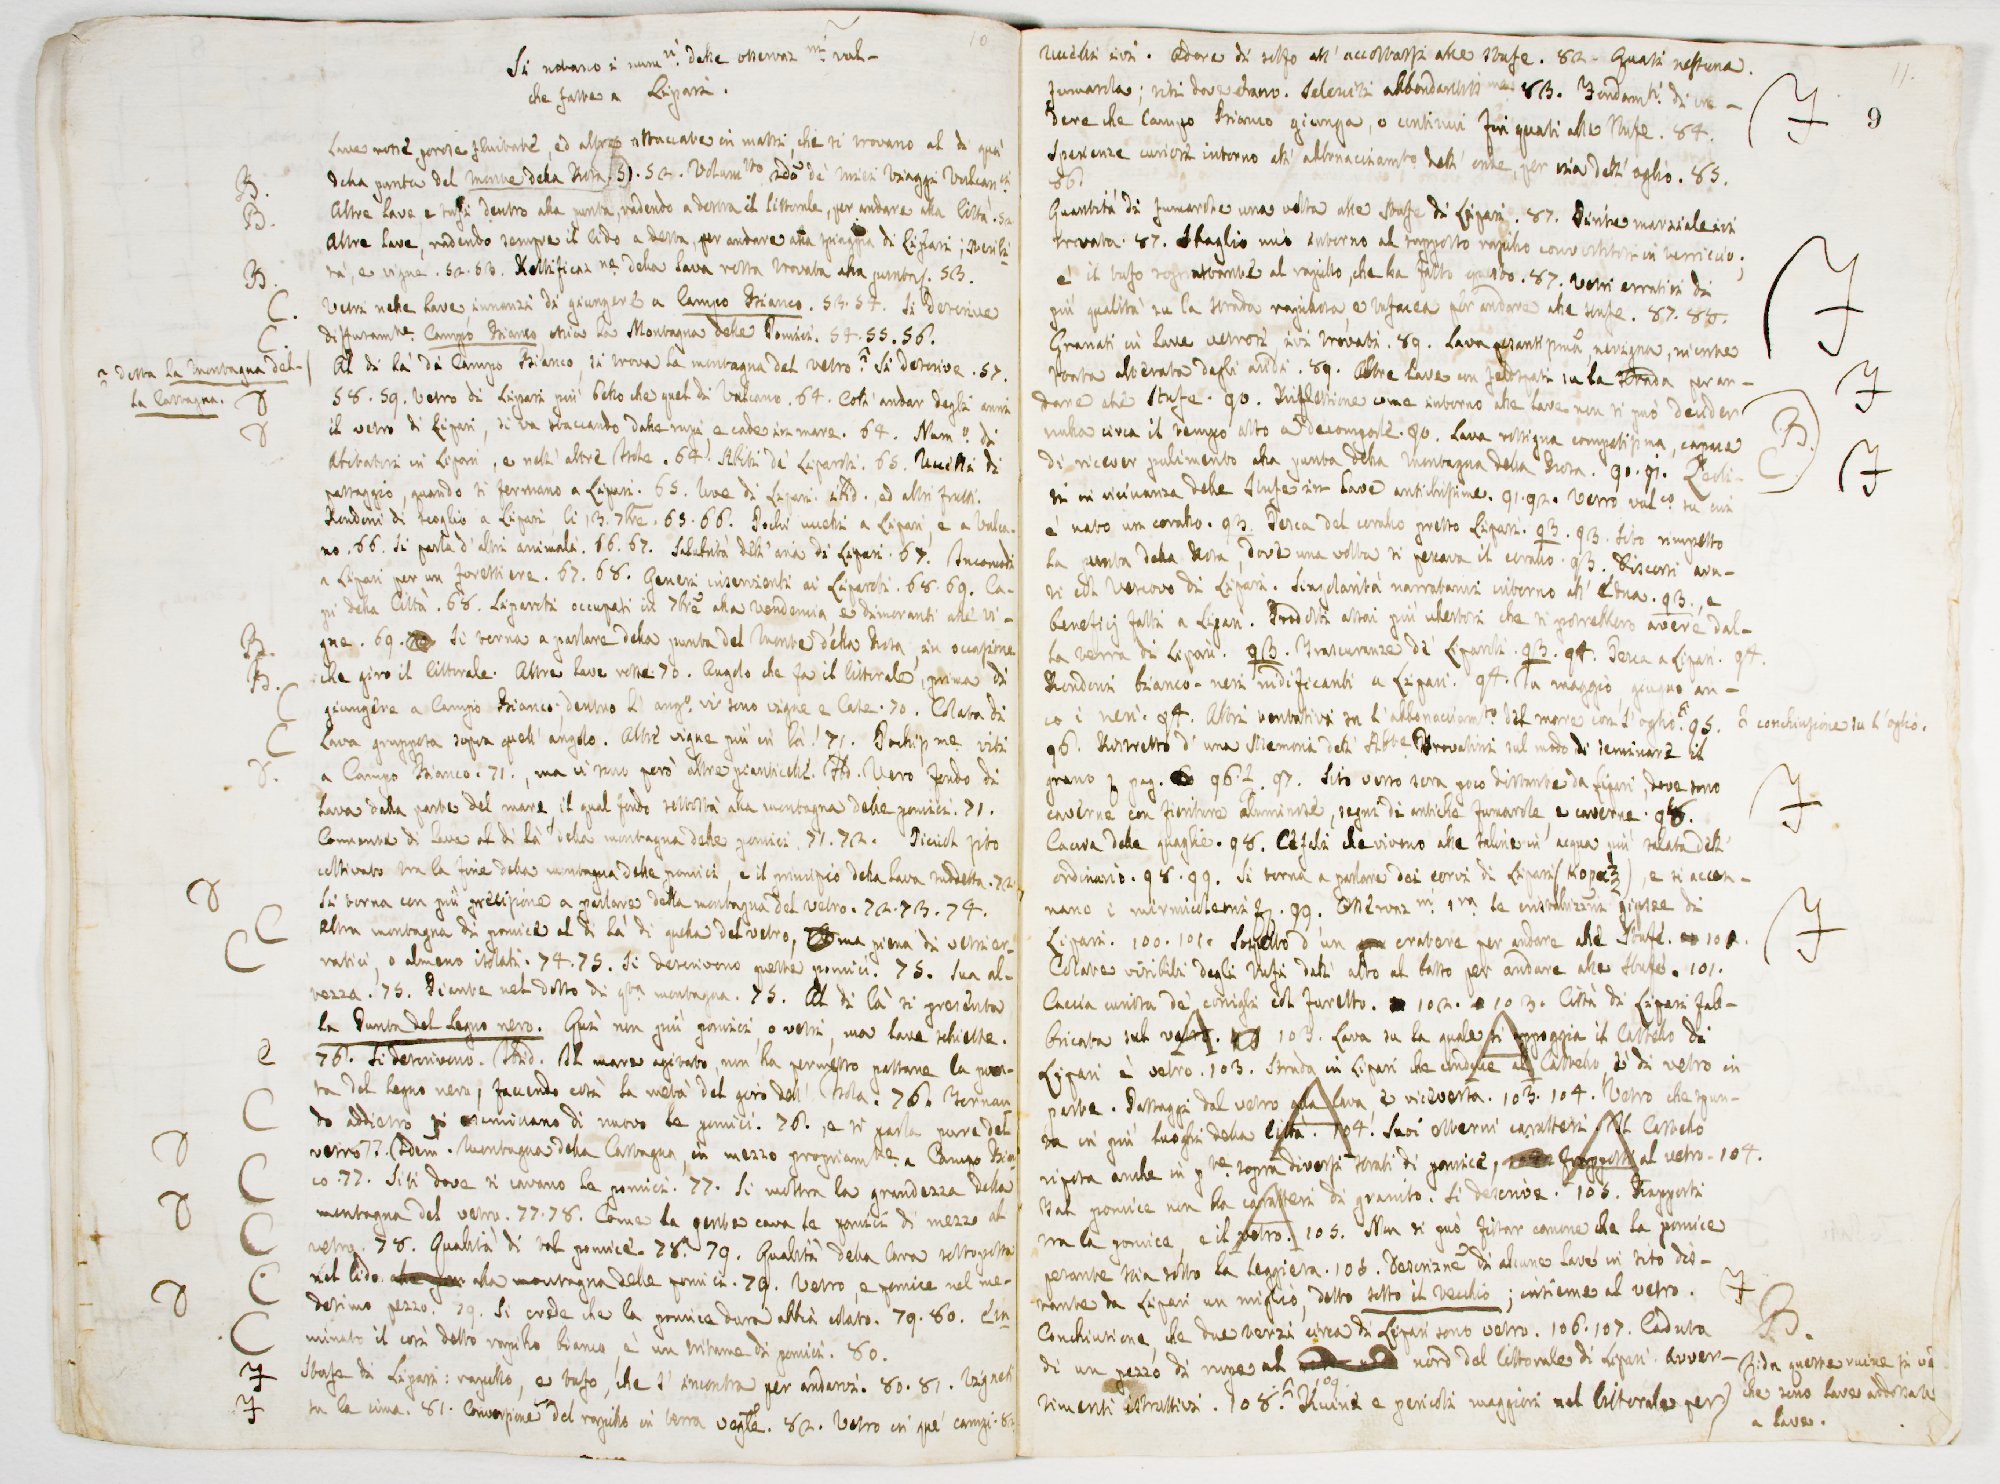 10
Si notano i num.ri delle osservaz.ni vul-
che fatte a Lipari.
Lave rosse porose fluitate, ed altre staccate in massi, che si trovano al di quà
B. della punta del Monte della Rosa. 51. 52. Volum. 2do de' miei Viaggi Vulcan.ci
B. Altre lave e tufi dentro alla punta, radendo a destra il littorale, per andare alla Città. 52
Altre lave, radendo sempre il lido a destra, per andare alla spiaggia di Lipari; sterili-
B. tà, e vigne. 52. 53. Rettificaz.ne della lava rossa trovata alla punta. 53.
C. Vetri nelle lave innanzi di giungere a Campo Bianco. 53. 54. Si descrive
C. diffusam.te Campo Bianco ossia la Montagna delle Pomici. 54. 55. 56.
Al di là di Campo Bianco, si trova la montagna del vetro. Si descrive. 57.
detta la Montagna del-
la Castagna.
58. 59. Vetro di Lipari più bello che quel di Vulcano. 64. Cogli andar degli anni
il vetro di Lipari, si va staccando dalle rupi, e cade in mare. 64. Num.o di
Abitatori in Lipari, e nell' altre Isole. 64. Abiti de' Liparoti. 65. Uccelli di
passaggio, quando si fermano a Lipari. 65. Uve di Lipari. ibid. ed altri frutti.
Rondoni di scoglio a Lipari li 13. 7bre. 65. 66. Pochi uccelli a Lipari, e a Vulca-
no. 66. Si parla d' altri animali. 66. 67. Salubrità dell' aria di Lipari. 67. Incomodi
a Lipari per un forestiere. 67. 68. Generi inservienti ai Liparoti. 68. 69. Ca-
pi della Città. 68. Liparoti occupati in 7bre alla vendemia, e dimoranti alle vi-
B. gne. 69. Si torna a parlare della punta del Monte della Rosa, in occasione
B. che giro il littorale. Altre lave rosse. 70. Angolo che fa il littorale, prima di
C giungere a Campo Bianco; dentro l' ang.o vi sono vigne e Case. 70. Colata di
C lava grupposa sopra quell' angolo. Altre vigne più in là. 71. Pochissime viti
a Campo Bianco. 71., ma vi sono però altre pianticelle. Ibid. Vero fondo di
lava dalla parte del mare, il qual fondo sottostà alla montagna delle pomici. 71.
Corrente di lave al di là della montagna delle pomici. 71. 72. Piccol sito
coltivato tra la fine della montagna delle pomici, e il principio della lava suddetta. 72
Si torna con più precisione a parlare della montagna del vetro. 72. 73. 74.
C Altra montagna di pomice al di là di quella del vetro, ma piena di vetri er-
C ratici, o almeno isolati. 74. 75. Si descrivono queste pomici. 75. Sua al-
tezza. 75. Piante nel dosso di q.ta montagna. 75. Al di là si presenta
la Punta del Legno nero. Quì non più pomici, o vetri, ma lave schiette.
76. Si descrivono. Ibid. Il mare agitato non ha permesso passare la pun-
ta del legno nero, facendo così la metà del giro dell' Isola. 76. Tornan-
C do addietro si esaminano di nuovo le pomici. 76., e si parla pure del
vetro 77. Idem. Montagna della Castagna, in mezzo propriam.te a Campo Bian-
C co. 77. Siti dove si cavano le pomici. 77. Si mostra la grandezza della
montagna del vetro. 77. 78. Come la gente cava le pomici di mezzo al
C vetro. 78. Qualità di tal pomice. 78. 79. Qualità della lava sottoposta
C nel lido alla montagna delle pomici. 79. Vetro e pomice nel me-
desimo pezzo. 79. Si crede che la pomice dura abbia colato. 79. 80. Esa-
C minato il così detto rapillo bianco, è un tritume di pomici. 80.
Stufe di Lipari: rapillo, e tufo, che s' incontra per andarvi. 80. 81. Vigneti
su la cima. 81. Conversione del rapillo in terra veg.le. 82. Vetro in que' campi. 82
11.
9
uccelli ivi. Odore di solfo all' accostarsi alle stufe. 82. Quasi nessuna
fumarola; siti dove erano. Seleniti abbondantiss.me 83. Fondam.ti di cre-
dere che Campo Bianco giunga, o continui fin quasi alle Stufe. 84.
Sperienze curiose intorno all' abbonacciamento dell' onde, per via dell' oglio. 85.
86.
Quantità di fumarole una volta alle Stufe di Lipari. 87. Pirite marziale ivi
trovata. 87. Sbaglio mio intorno al supposto rapillo convertitosi in terriccio;
è il tufo soprastante al rapillo, che ha fatto questo. 87. Vetri erratici di
più qualità su la strada rapillosa e tufacea per andare alle stufe. 87. 88.
Granati in lave vetrose ivi trovati. 89. Lava pesantissima, nerigna, niente
stata alterata dagli acidi. 89. Altre lave con feldspati su la strada per an-
dare alle Stufe. 90. Riflessione come intorno alle lave non si può deider
B. nulla circa il tempo atto a decomporle. 90. Lava rossigna compatissima, capace
C di ricever pulimento alla punta della Montagna della Rosa. 90. 91. Zeoli-
ti in vicinanza delle Stufe in lave antichissime. 91. 92. Vetro vulc.o su cui
è nato un corallo. 93. Pesca del corallo presso Lipari. 93. 93. Sito rimpetto
la punta della Rosa, dove una volta si pescava il corallo. 93. Discorsi avu-
ti col Vescovo di Lipari. Singolarità narratami intorno all' Etna. 93., e
beneficj fatti a Lipari. Prodotti assai più ubertosi che si potrebbero avere dal-
la terra di Lipari. 93. Trascuranze de' Liparoti. 93. 94. Pesca a Lipari. 94.
Rondoni bianco-neri nidificanti a Lipari. 94. In maggio, giugno an-
co i neri. 94. Altri tentativi su l' abbonacciam.to del mare con l' oglio. 95.
conchiusione su l' oglio.
96. Ristretto d' una Memoria dell' Abbe Trovatini sul modo di seminare il
grano p pag. 96. 97. Sito verso sera poco distante da Lipari, dove sono
caverne con fioriture aluminose, segni di antiche fumarole, e caverne. 98.
Caccia delle quaglie. 98. Cefali che vivono alle saline in acqua più salata dell'
ordinario. 98. 99. Si torna a parlare dei corvi di Lipari, e si accen-
nano i mirmicoleoni. 99. Osservaz.ni le cristallizz.ni di
Lipari. 100. 101. Sospetto d' un cratere per andare alle Stufe. 101.
Colate visibili degli tufi dall' alto al basso per andare alle Stufe. 101.
Caccia curiosa de' conigli col furetto. 102. 103. Città di Lipari fab-
bricata sul vetro. 103. Lava su la quale si appoggia il Castello di
Lipari è vetro. 103. Strada in Lipari che conduce al Castello, è di vetro in
parte. Passaggi dal vetro alla lava, e viceversa. 103. 104. Vetro che spun-
ta in più luoghi della città. 104. Suoi diversi caratteri. Il Castello
riposa anche in p.te sopra diversi strati di pomice, frapposti al vetro. 104.
Tal pomice non ha caratteri di granito. Si descrive. 105. Rapporti
tra la pomice, e il vetro. 105. Non si può fissar canone che la pomice
pesante stia sotto la leggiera. 106. Descriz.ne di alcune lave in sito dis-
tante da Lipari un miglio, detto sotto il Vecchio; insieme al vetro.
B.
Conchiusione, che due terzi circa di Lipari sono vetro. 106. 107. Caduta
di un pezzo di rupe al nord del littorale di Lipari. Avver-
timenti istruttivi. 108. 109. Ruine e pericoli maggiori nel littorale per
Da queste ruine si ve
che sono lave addossate
a lave.